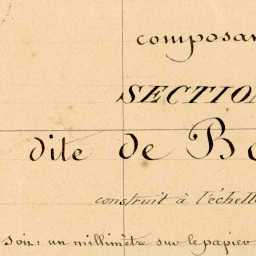 composan
SECTION
dite de Bo
construit à l'échelle
Soit: un millimètre sur le papier